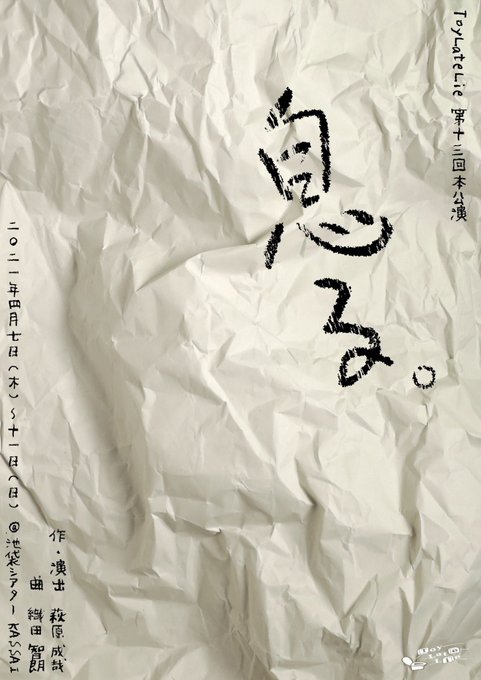 ToyLateLie 第十三回本公演
息る。
作・演出 萩原成哉
曲 織田智朗
二〇二一年四月七日(木)~十一日(日) @池袋シアターKASSAI